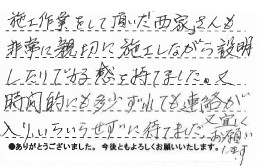 施工作業をして頂いた西家さんも
非常に親切に施工しながら説明
したりで好感を持てました。又
時間的にも多少ずれても連絡が
入りいらいらせずに待てました。
又宜しく
お願い
します
●ありがとうございました。今後ともよろしくお願いいたします。